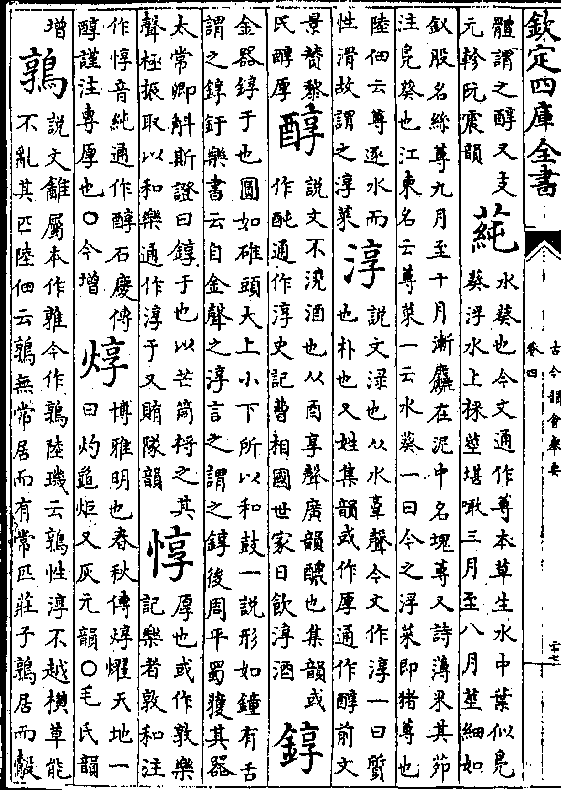 欽定四庫全書
古今韻會舉要
卷四
二十七
體謂之醇又支
元軫阮震韻
蓴
水葵也今文通作蓴本草生水中葉似鳧
葵浮水上採莖堪噉三月至八月莖細如
釵股名絲蓴九月至十月漸麤在泥中名塊蓴又詩薄采其茆
注鳧葵也江東名云蓴菜一云水葵一曰今之浮菜即猪蓴也
陸佃云蓴逐水而
性滑故謂之淳菜
淳
說文淥也从水𦎫聲今文作淳一曰質
也朴也又姓集韻或作厚通作醇前文
景贊黎
民醇厚
醇
說文不澆酒也从酉享聲廣韻醲也集韻或
作酏通作淳史記曹相國世家日飲淳酒
錞
金器錞于也圜如碓頭大上小下所以和鼓一說形如鐘有舌
謂之錞釪樂書云自金聲之淳言之謂之錞後周平蜀獲其器
太常卿斛斯證曰錞于也以芒筒捋之其
聲極振取以和樂通作淳于又賄隊韻
惇
厚也或作敦樂
記樂者敦和注
作惇音純通作醇石慶傳
醇謹注專厚也○今增
焞
博雅明也春秋傳焞燿天地一
曰灼龜炬又灰元韻○毛氏韻
增
鶉
說文雝屬本作雜今作鶉陸璣云鶉性淳不越橫草能
不亂其匹陸佃云鶉無常居而有常匹莊子鶉居而鷇